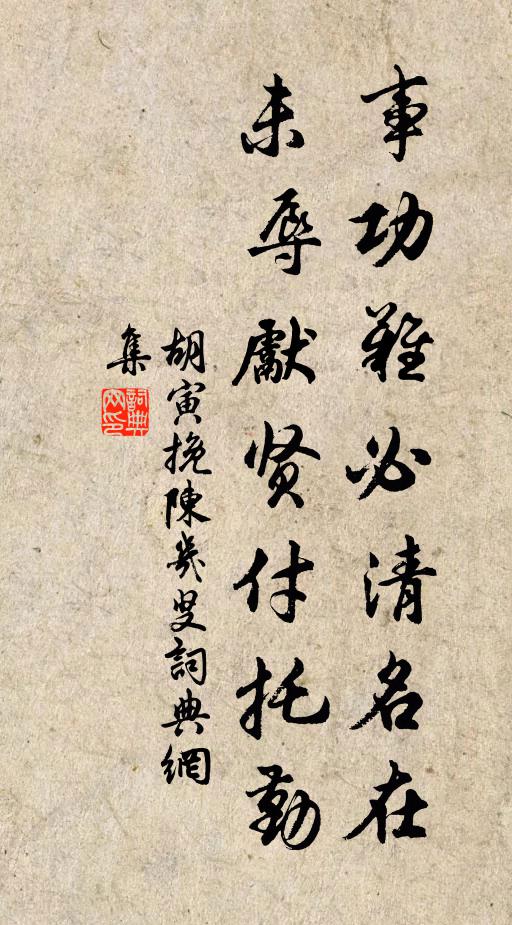 事功難必清名在
未辱獻贤付托勤
胡寅挽陳几叟詞典網
集
詞典网印